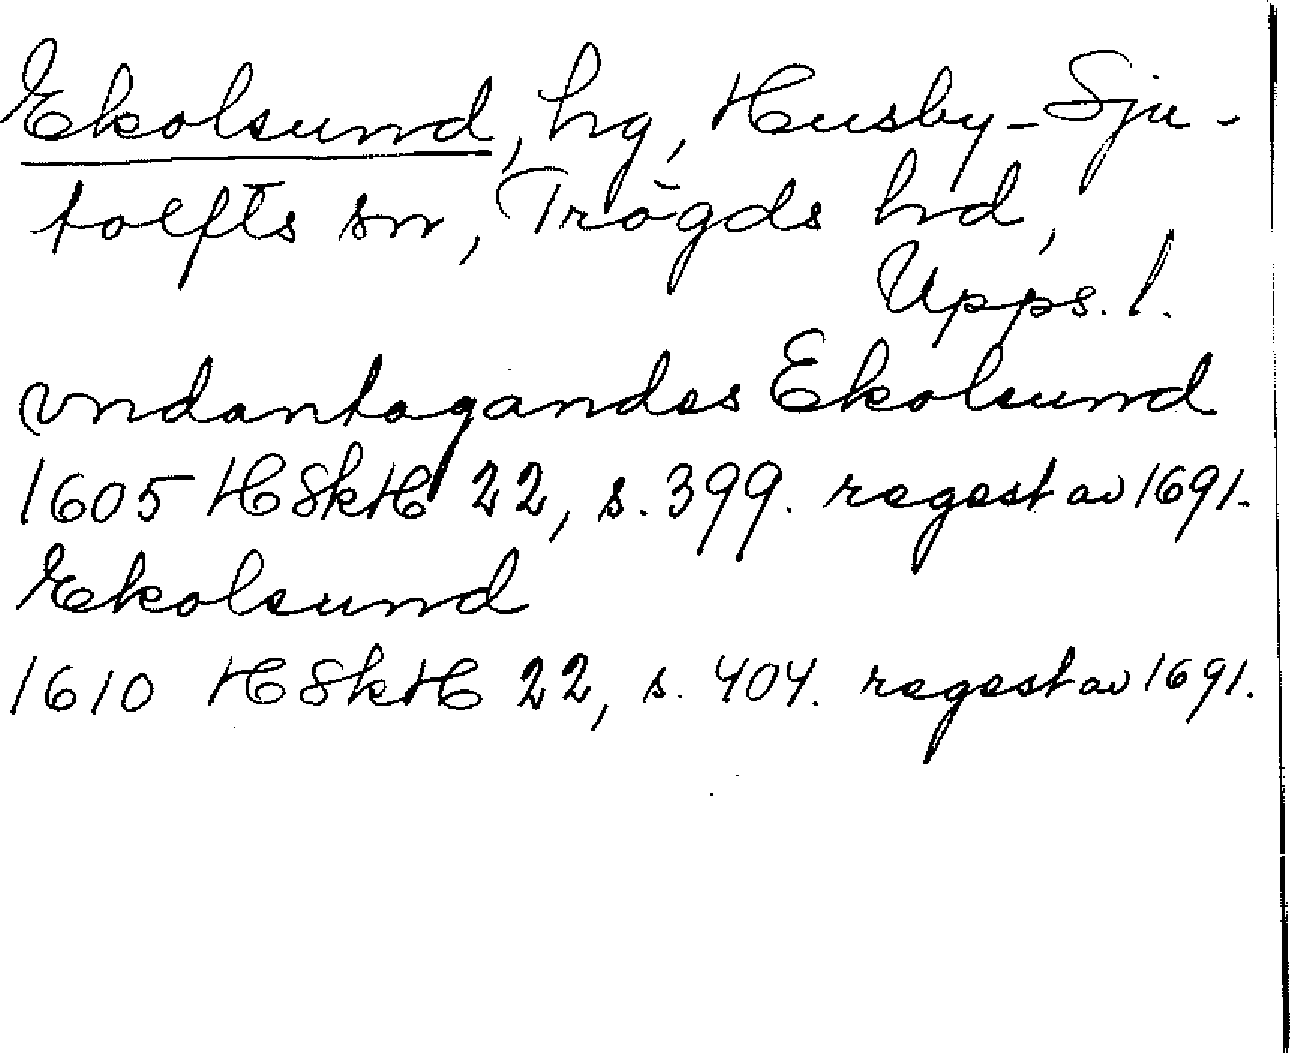 Ekolsund, hg, Husby-Sju-
tolfts sn, Trögds hd,
Upps. l.
vndantagandes Ekolsund
1605 HSkH 22, s. 399. regest av 1691.
Ekolsund
1610 HSkH 22, s. 404. regest av 1691.